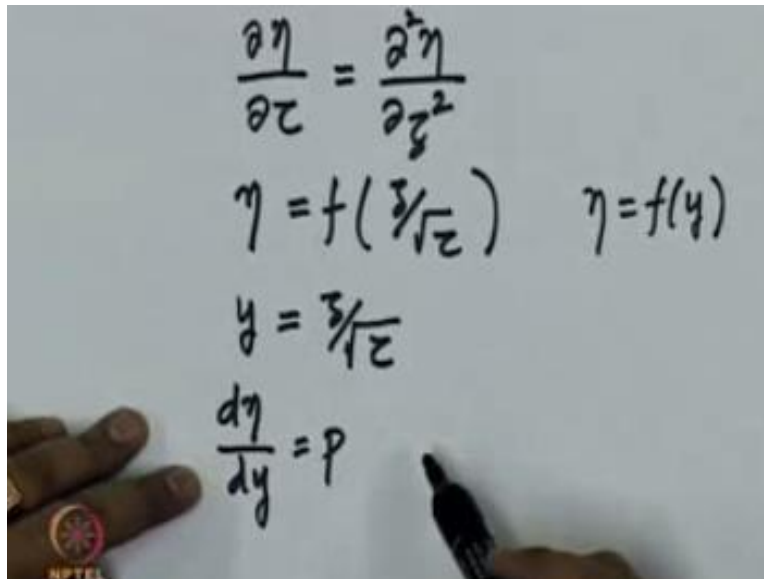 ∂η/∂τ = ∂²η/∂ξ²
η = f(ξ/√τ) η = f(y)
y = ξ/√τ
dη/dy = p
NPTEL